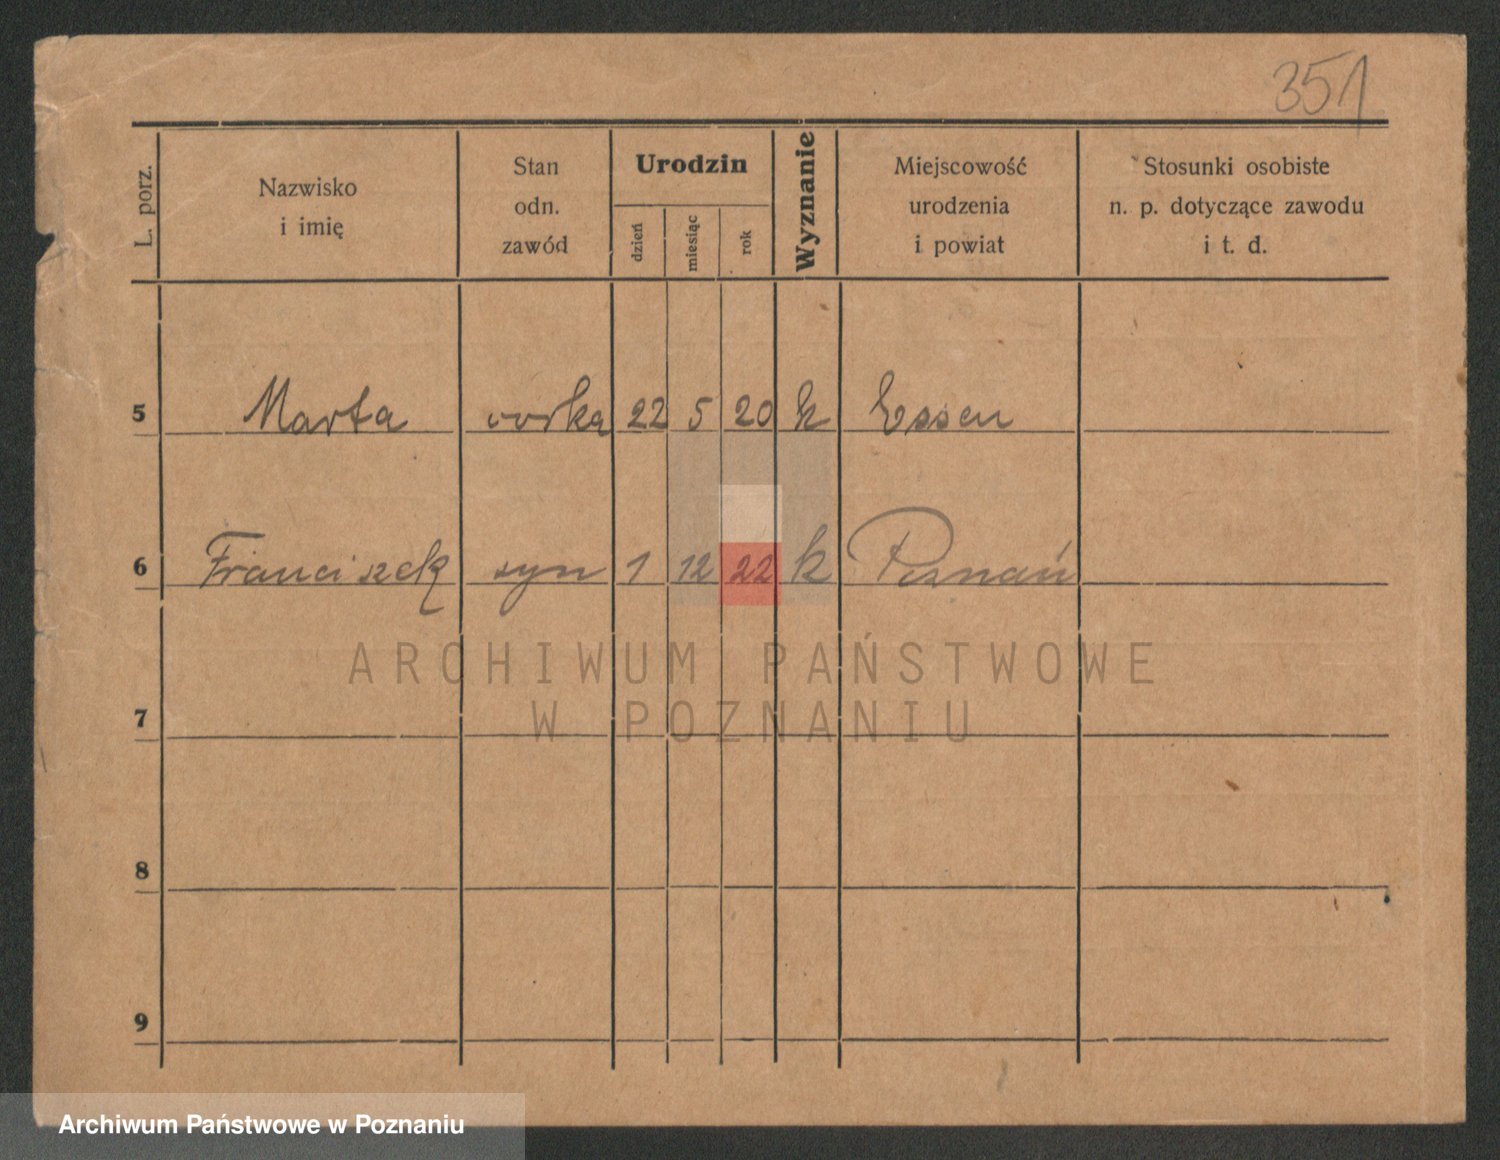 351
L. porz.
Nazwisko
i imię
Stan
odn.
zawód
Urodzin
dzień
miesiąc
rok
Wyznanie
Miejscowość
urodzenia
i powiat
Stosunki osobiste
n. p. dotyczące zawodu
i t. d.
5 Marta 22 5 20 k Essen
6 Franciszek syn 1 12 22 k Poznań
ARCHIWUM PAŃSTWOWE
W POZNANIU
7
8
9
Archiwum Państwowe w Poznaniu